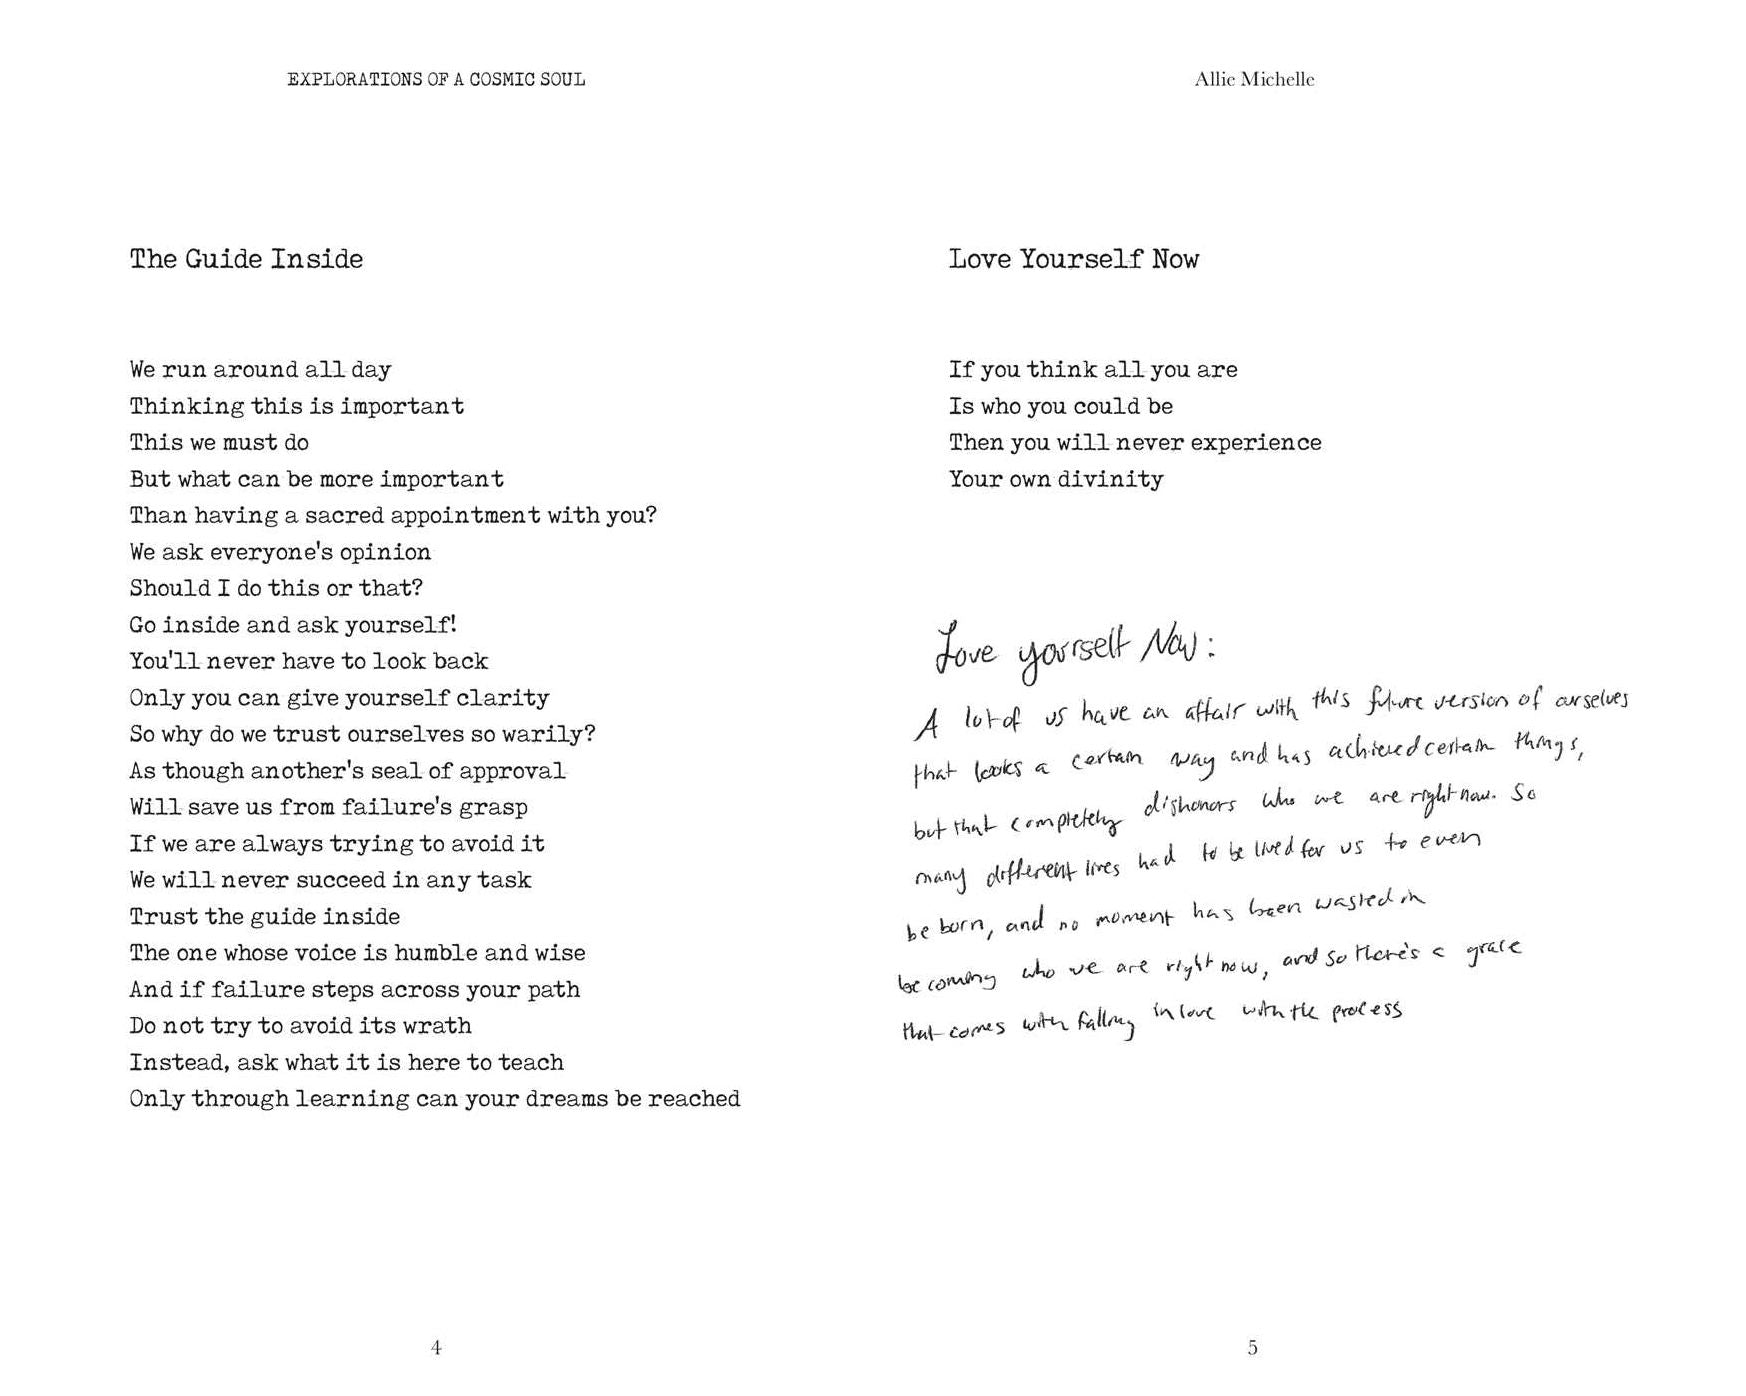 EXPLORATIONS OF A COSMIC SOUL
The Guide Inside
We run around all day
Thinking this is important
This we must do
But what can be more important
Than having a sacred appointment with you?
We ask everyone's opinion
Should I do this or that?
Go inside and ask yourself!
You'll never have to look back
Only you can give yourself clarity
So why do we trust ourselves so warily?
As though another's seal of approval
Will save us from failure's grasp
If we are always trying to avoid it
We will never succeed in any task
Trust the guide inside
The one whose voice is humble and wise
And if failure steps across your path
Do not try to avoid its wrath
Instead, ask what it is here to teach
Only through learning can your dreams be reached
4
Allie Michelle
Love Yourself Now
If you think all you are
Is who you could be
Then you will never experience
Your own divinity
Love yourself Now:
A lot of us have an affair with this future version of ourselves
that looks a certain way and has achieved certain things,
but that completely dishonors who we are right now. So
many different lives had to be lived for us to even
be born, and no moment has been wasted in
becoming who we are right now, and so there's a grace
that comes with falling in love with the process
5